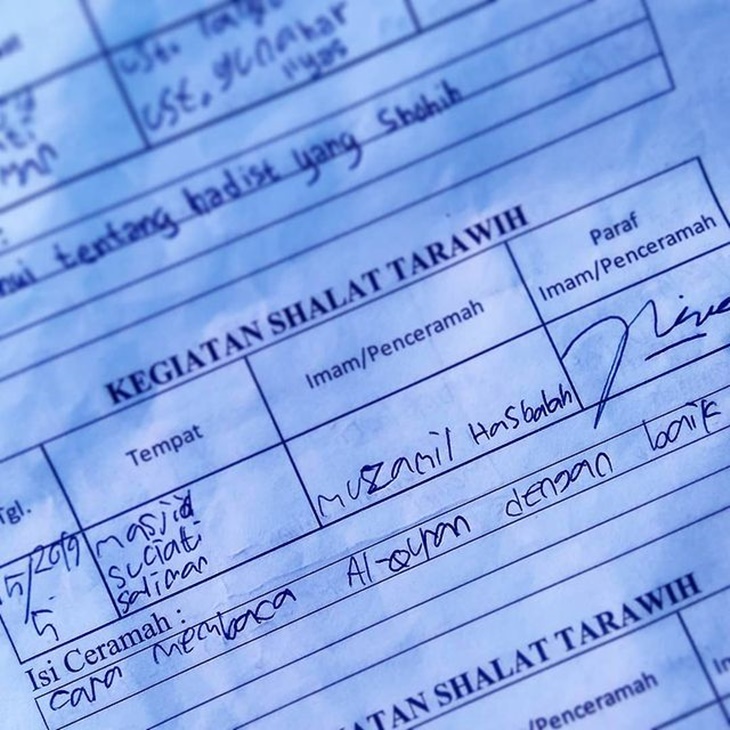 ust.
ust. yunahar
ilyas
tentang hadist yang Shohih
KEGIATAN SHALAT TARAWIH
Tgl.
Tempat
Imam/Penceramah
Paraf
Imam/Penceramah
5/2019
5
masjid
suciati
saliman
muzamil Hasballah
Isi Ceramah :
cara membaca Al-quran dengan baik
SHALAT TARAWIH
/Penceramah